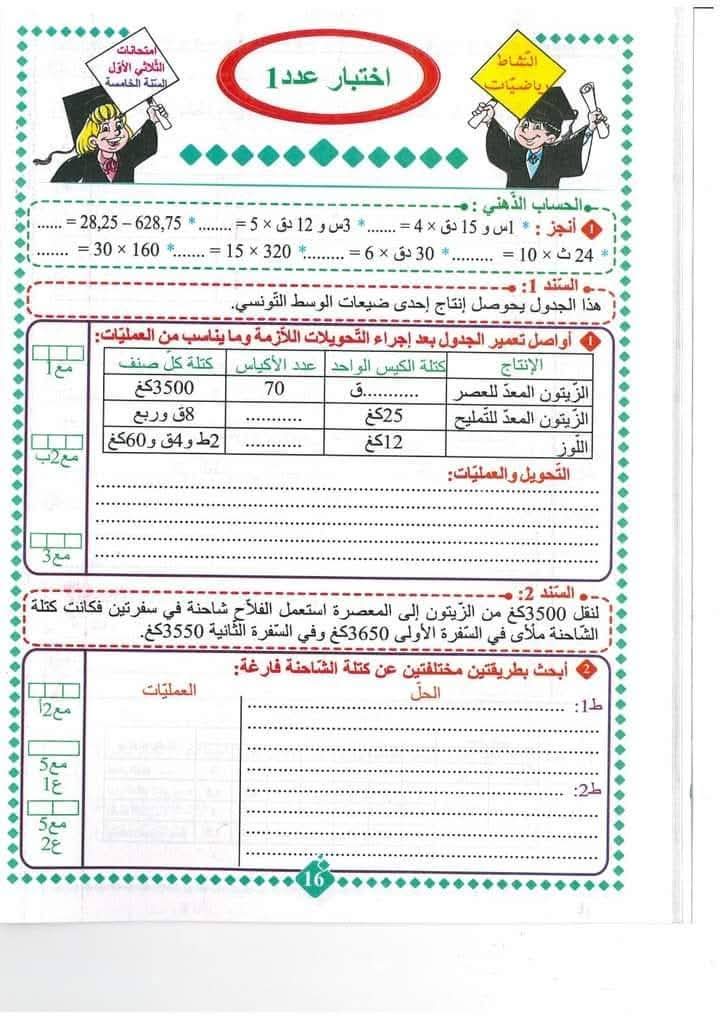 النّشاط
رياضيّات
اختبار عدد1
امتحانات
الثّلاثي الأوّل
السّنة الخامسة
الحساب الذّهني :
1 أنجز : * 1س و 15 دق × 4 = ....... * 3س و 12 دق × 5 = ........ * 628,75 – 28,25 = ......
* 24 ث × 10 = .......... * 30 دق × 6 = ......... * 320 × 15 = ....... * 160 × 30 = ........
السّند 1:
هذا الجدول يحوصل إنتاج إحدى ضيعات الوسط التّونسي.
1 أواصل تعمير الجدول بعد إجراء التّحويلات اللاّزمة وما يناسب من العمليّات:
مع1
الإنتاج كتلة الكيس الواحد عدد الأكياس كتلة كلّ صنف
الزّيتون المعدّ للعصر ...........ق 70 3500كغ
الزّيتون المعدّ للتّمليح 25كغ ........... 8ق وربع
اللّوز 12كغ ........... 2ط و4ق و60كغ
مع2ب
التّحويل والعمليّات:
مع3
السّند 2:
لنقل 3500كغ من الزّيتون إلى المعصرة استعمل الفلاّح شاحنة في سفرتين فكانت كتلة
الشّاحنة ملأى في السّفرة الأولى 3650كغ وفي السّفرة الثّانية 3550كغ.
2 أبحث بطريقتين مختلفتين عن كتلة الشّاحنة فارغة:
الحلّ العمليّات
ط1:
مع2أ
مع5
ع1
ط2:
مع5
ع2
16